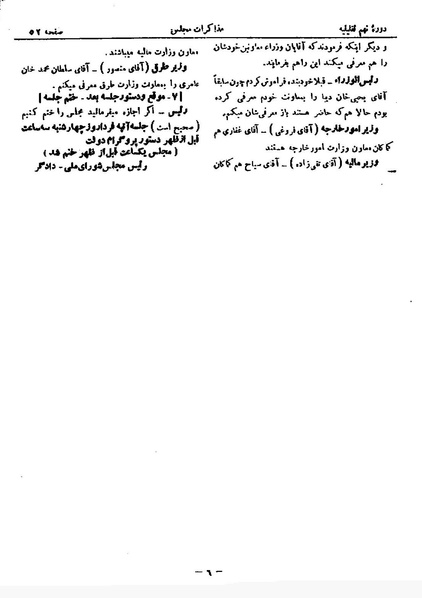 دورۀ نهم تقنینیه
مذاکرات مجلس
صفحه ۵۲
و دیگر اینکه فرمودند که آقایان وزراء معاونین خودشان
را هم معرفی میکنند این را هم بفرمایند.
رئیس‌الوزراء ــ قبلا خود بنده، فراموش کردم چون سابقاً
آقای یحیی خان دیبا را بمعاونت خودم معرفی کرده
بودم حالا هم که حاضر هستند باز معرفی‌شان میکنم.
وزیر امور خارجه (آقای فروغی) ــ آقای غفاری هم
کماکان معاون وزارت امور خارجه هستند
وزیر مالیه (آقای تقی‌زاده) ــ آقای سیاح هم کماکان
معاون وزارت مالیه میباشند.
وزیر طرق (آقای منصور) ــ آقای سلطان محمد خان
عامری را بمعاونت وزارت طرق معرفی میکنم.
[ ۷ ـ موقع و دستور جلسه بعد ـ ختم جلسه ]
رئیس ــ اگر اجازه میفرمائید مجلس را ختم کنیم
(صحیح است) جلسه آتیه فردا روز چهارشنبه سه ساعت
قبل از ظهر دستور پروگرام دولت
(مجلس یکساعت قبل از ظهر ختم شد)
رئیس مجلس شورای ملی ـ دادگر
ــ ٦ ــ